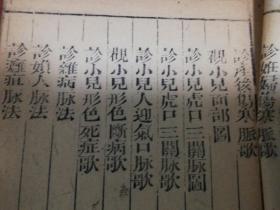 診妊婦傷寒脈歌
診產後傷寒脈歌
觀小兒面部圖
診小兒虎口三關脈圖
診小兒虎口三關脈歌
診小兒人迎氣口脈歌
觀小兒形色斷病歌
診小兒形色死症歌
診雜病脈法
診婦人脈法
診癰疽脈法